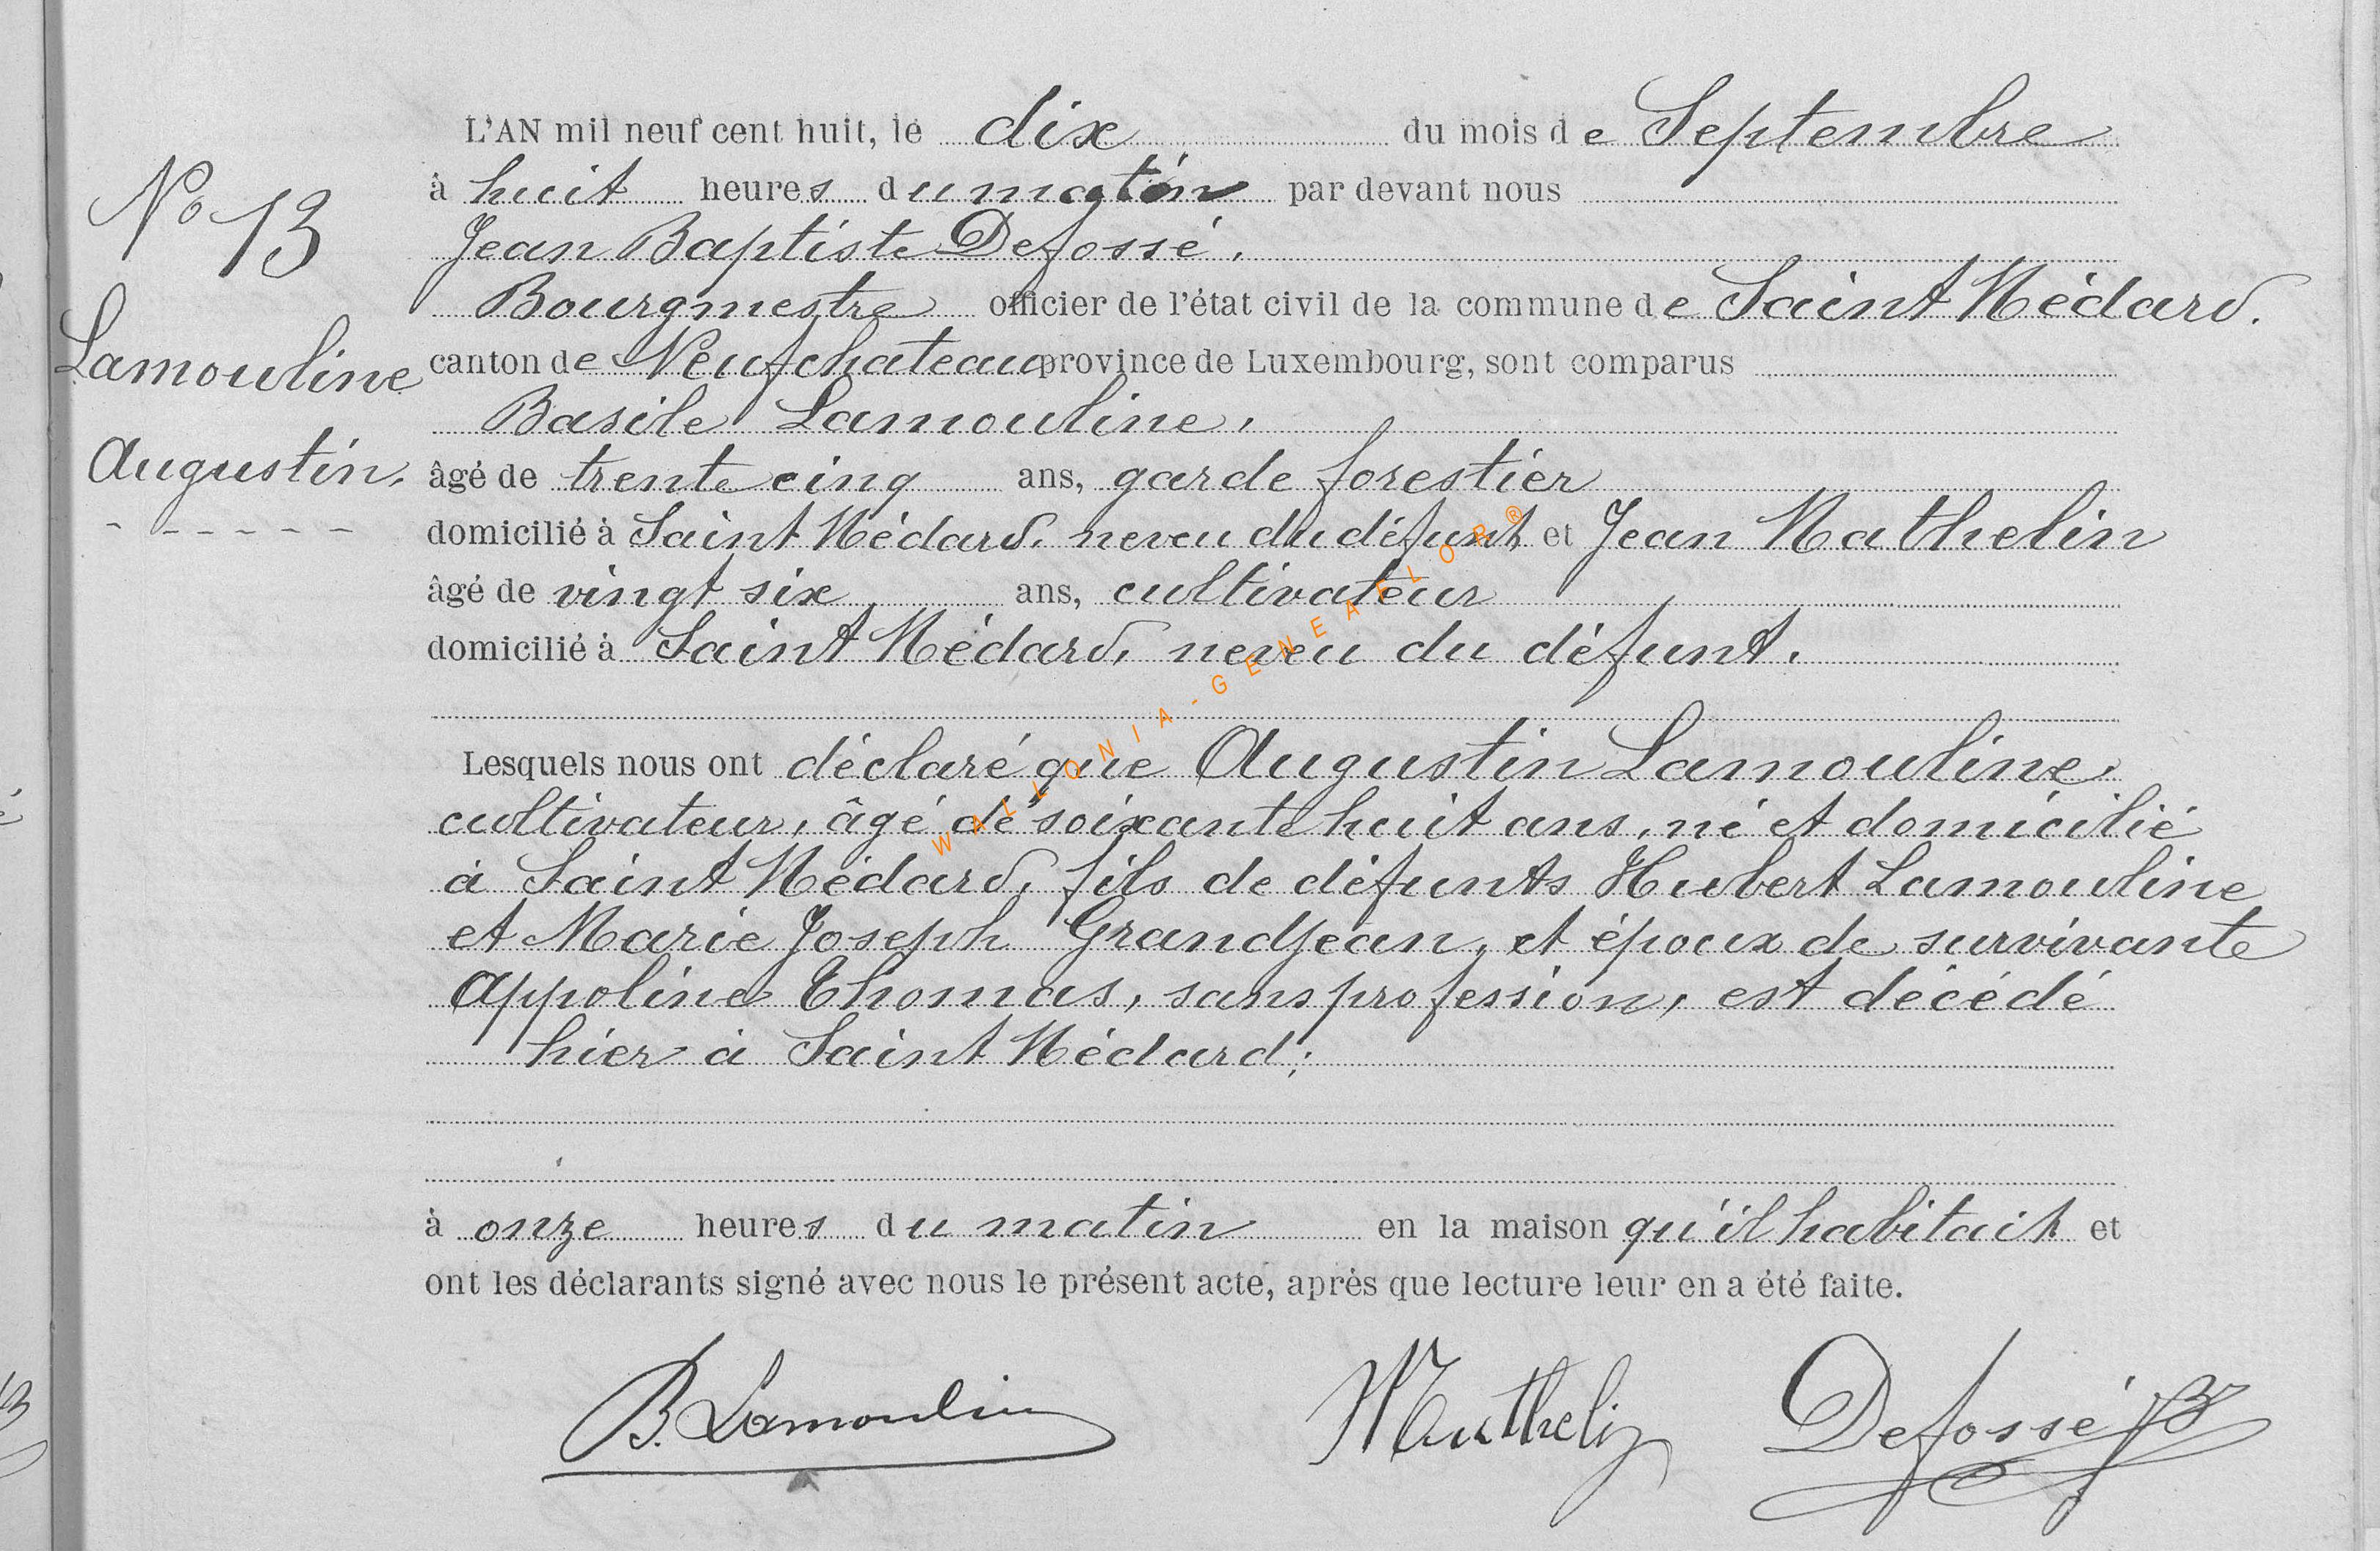 L'AN mil neuf cent huit, le dix du mois de Septembre
à huit heures du matin par devant nous
No 13
Jean Baptiste Defossé,
Bourgmestre officier de l'état civil de la commune de Saint Médard.
Lamouline
canton de Neufchateau province de Luxembourg, sont comparus
Basile Lamouline,
Augustin.
âgé de trente cinq ans, garde forestier
domicilié à Saint Médard, neveu du défunt et Jean Mathelin
âgé de vingt six ans, cultivateur
domicilié à Saint Médard, neveu du défunt.
Lesquels nous ont déclaré que Augustin Lamouline,
cultivateur, âgé de soixante huit ans, né et domicilié
à Saint Médard, fils de défunts Hubert Lamouline
et Marie Joseph Grandjean, et époux de survivante
Appoline Thomas, sans profession, est décédé
hier à Saint Médard;
à onze heures du matin en la maison qu'il habitait et
ont les déclarants signé avec nous le présent acte, après que lecture leur en a été faite.
B. Lamoulin
Mathelin
Defossé JB
WALLONIA-GENEAFLOR®